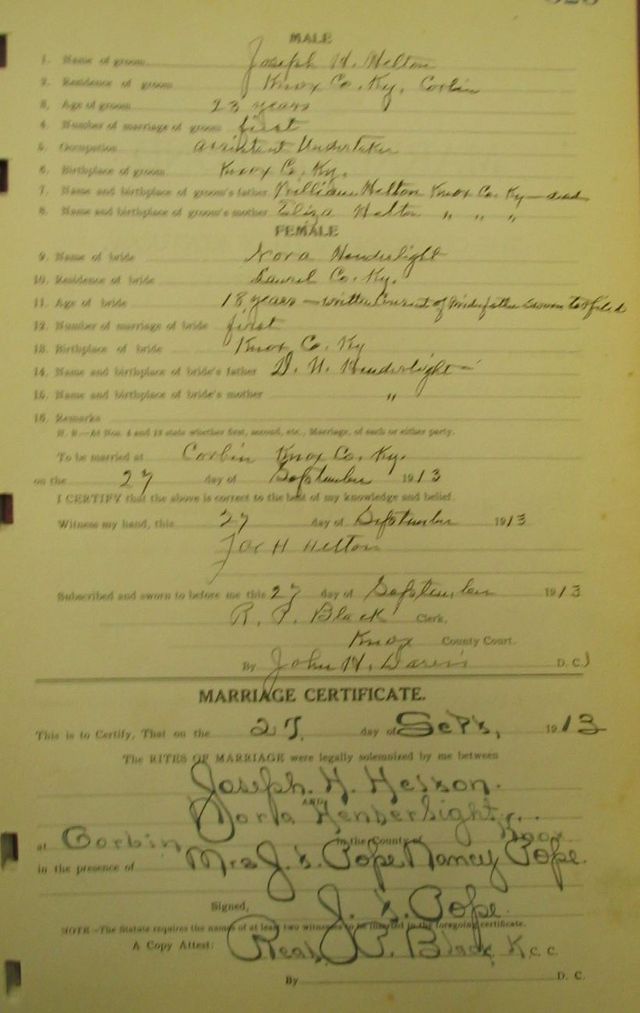 MALE
1. Name of groom Joseph H. Helton
2. Residence of groom Knox Co. Ky. Corbin
3. Age of groom 23 years
4. Number of marriage of groom first
5. Occupation assistent Undertaker
6. Birthplace of groom Knox Co. Ky.
7. Name and birthplace of groom's father William Helton Knox Co. Ky — dead
8. Name and birthplace of groom's mother Eliza Helton " " "
FEMALE
9. Name of bride Nora Henderlight
10. Residence of bride Laurel Co. Ky.
11. Age of bride 18 years — written Consent of
12. Number of marriage of bride first
13. Birthplace of bride Knox Co. Ky
14. Name and birthplace of bride's father Henderlight —
15. Name and birthplace of bride's mother "
16. Remarks
N. B.—At Nos. 4 and 12 state whether first, second, etc., Marriage, of each or either party.
To be married at Corbin Knox Co. Ky.
on the 27 day of September 1913
I CERTIFY that the above is correct to the best of my knowledge and belief.
Witness my hand, this 27 day of September 1913
Joe H Helton
Subscribed and sworn to before me this 27 day of September 1913
R. P. Black Clerk,
Knox County Court.
By John H. D. C.
MARRIAGE CERTIFICATE.
This is to Certify, That on the 27, day of Sept's, 1913
The RITES OF MARRIAGE were legally solemnized by me between
Joseph. H. Helson.
AND
Nora Henderlight
at Corbin in the County of Knox
in the presence of Mrs J. s. Pope Nancy Pope.
Signed, J. s. Pope.
NOTE—The Statute requires the names of at least two witnesses to be inserted in the foregoing certificate.
A Copy Attest: Read, P. Black K. C. C.
By D. C.